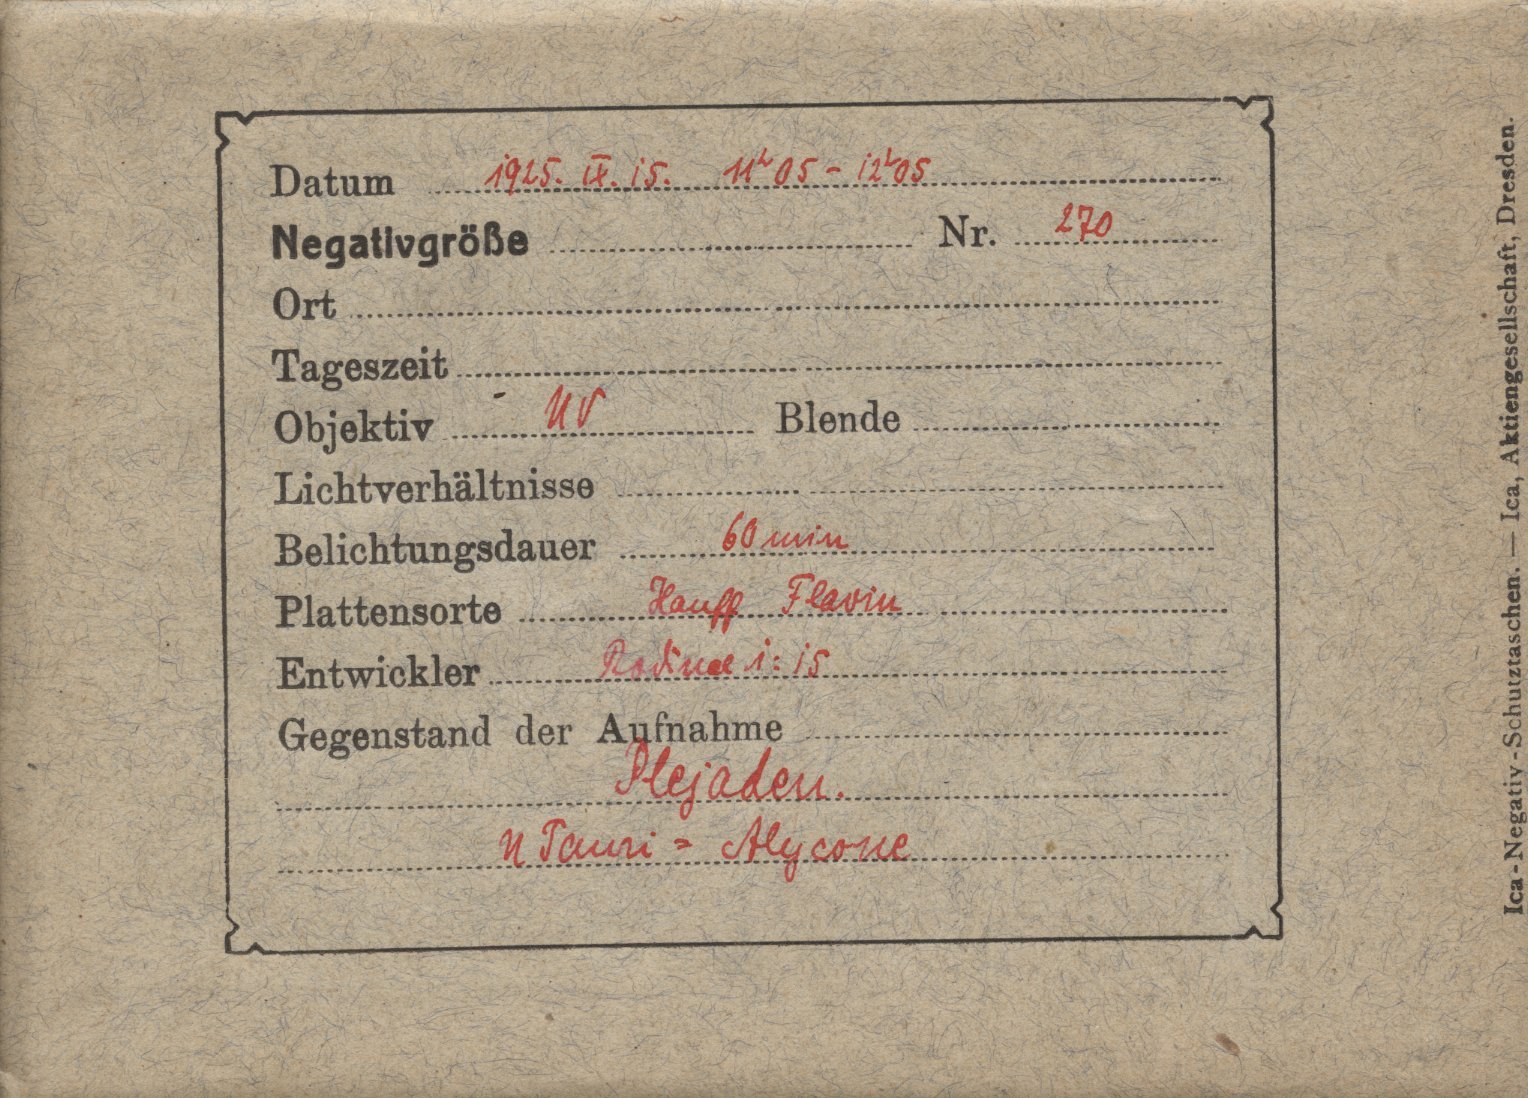 Datum 1925. IX. 15. 11h 05 - 12h 05
Negativgröße Nr. 270
Ort
Tageszeit
Objektiv UV Blende
Lichtverhältnisse
Belichtungsdauer 60 min
Plattensorte Hauff Flavin
Entwickler Rodinal 1:15
Gegenstand der Aufnahme
Plejaden.
η Tauri = Alycone
Ica-Negativ-Schutztaschen. — Ica, Aktiengesellschaft, Dresden.